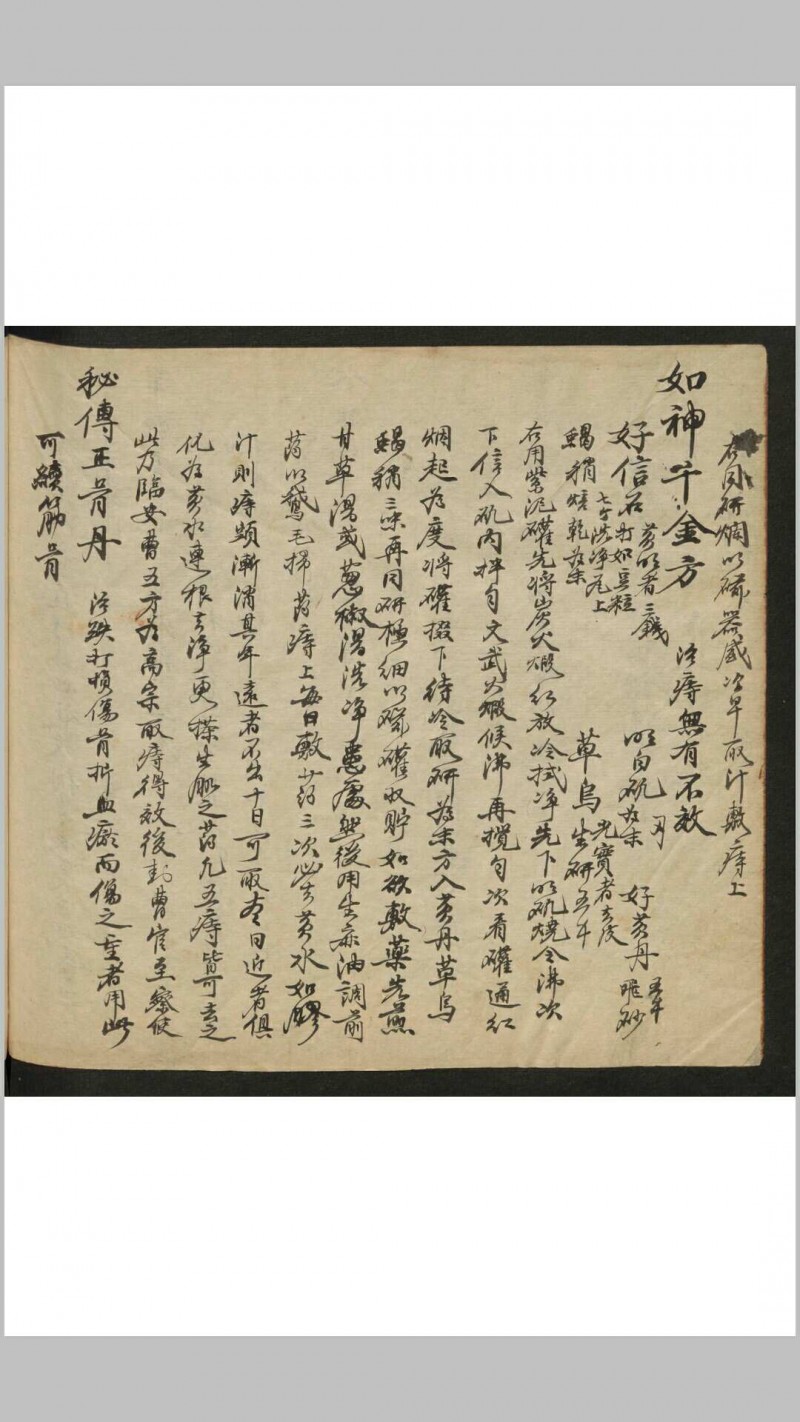 右同研爛以磁器盛冷早取汁敷痔上
如神千金方 治痔無有不效
好信石 黃明者三錢 打如豆粒 明白矾為末 一刃 好黃丹 五半
蝎稍 七个洗净瓦上焙乾為末 草烏 光實者去皮生研五半
右用紫泥礶先將炭火煅红放冷拭净先下明矾燒令沸次
下信入矾内拌匀文武火煅候沸再攪匀次看礶通红
烟起為度將礶掇下待冷取研為末方入黃丹草烏
蝎稍三味再同研極细以磁礶收貯如欲敷藥先煎
甘草湯或葱椒湯洗净患處然後用生麻油調前
药以鵝毛掃药痔上每日敷药三次必去黃水如膠
汁則痔頭漸消其年遠者不出十日可取尽日近者俱
化為黃水連根去净更搽生肌之药凡五痔皆可去之
此方臨安曹五方為高宗取痔得效後封曹官至察使
秘傳正骨丹 治跌打損傷骨折血瘀而傷之重者用此
可續筋骨